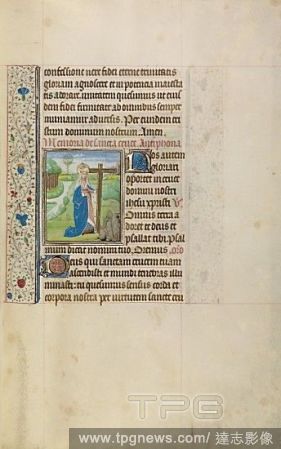 confessione vere fidei eterne trinitatis
gloriam agnoscere et in potencia maiesta
tis adorare unitatem quesumus ut eius
dem fidei firmitate ab omnibus semper
muniamur adversis. Per eundem cri
stum dominum nostrum. Amen.
Memoria de sancta cruce. Antiphona
Nos autem
gloriari
oportet in cruce
domini nostri
ihesu xpristi
Omnis terra a
doret te deus et
psallat tibi. Psal
mum dicat nomini tuo. Oremus. oro
Deus qui sanctam crucem tuam
ascendisti et mundi tenebras illu
minasti: tu quesumus sensus corda et
corpora nostra per virtutem sancte cru
TPG
www.tpgnews.com/ 達志影像